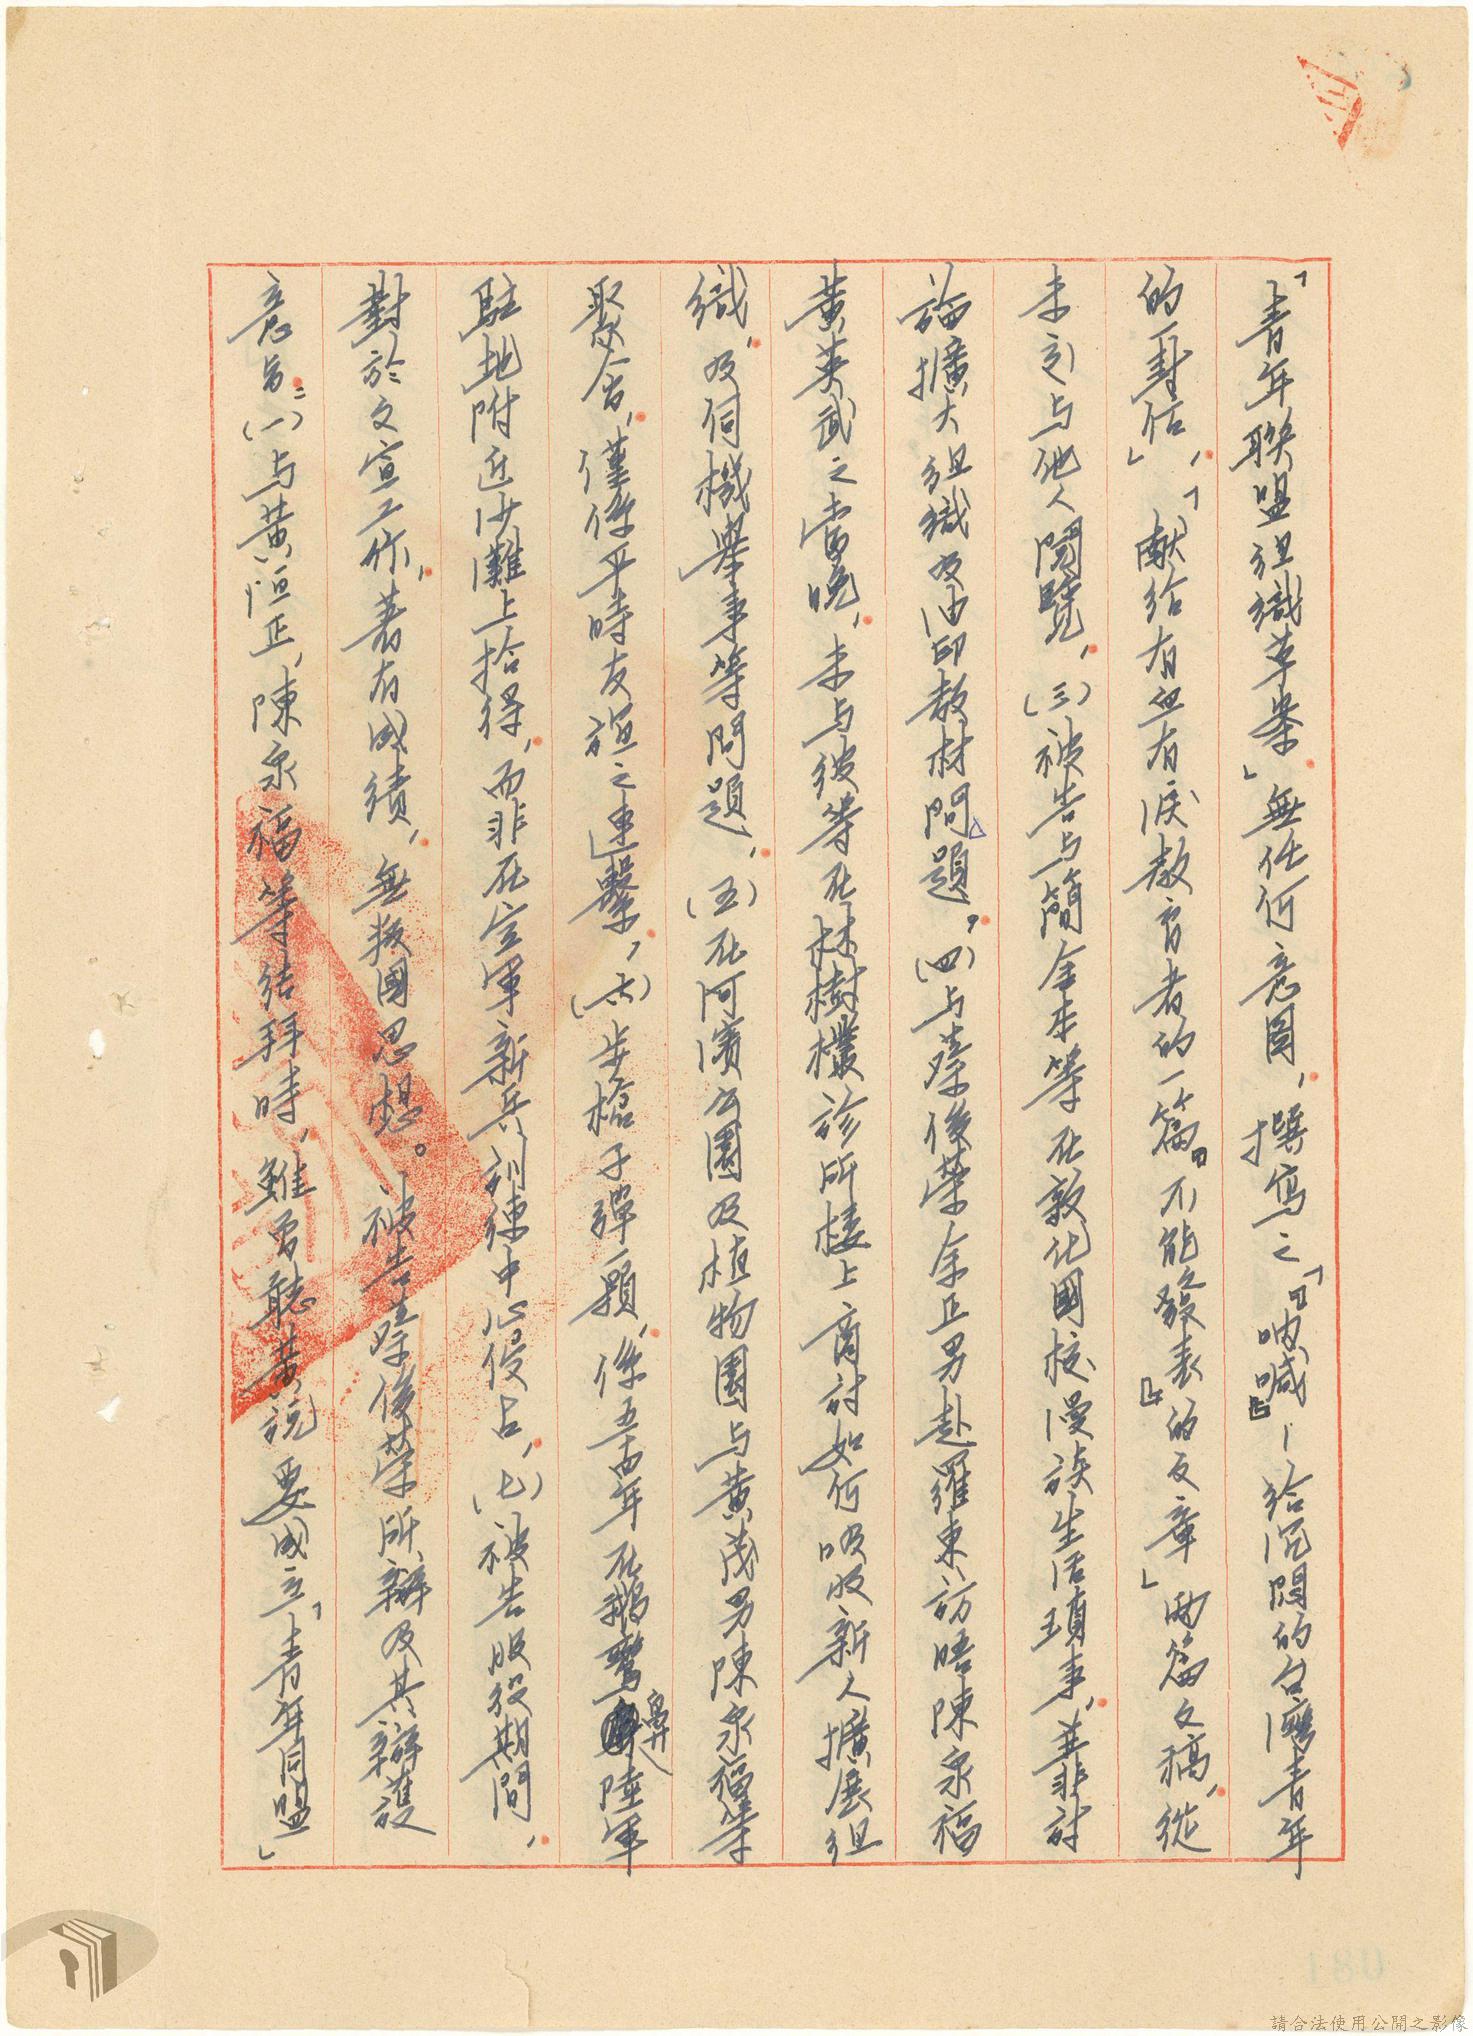 「青年聯盟組織草案」無任何意圖，撰寫之「『吶喊』－給沉悶的台灣青年
的一封信」，「『獻給有血有淚教育者的一篇』不能發表的文章」兩篇文稿，從
未交与他人閱覽，(三)被告与簡金本等在敦化國校漫談生活瑣事，並非討
論擴大組織及油印教材問題，(四)与蔡俊榮余正男赴羅東訪晤陳泉福
黃英武之當晚，未与彼等在林樹欉診所樓上商討如何吸收新人擴展組
織，及伺機舉事等問題，(五)在河濱公園及植物園与黃茂男陳泉福等
聚會，僅係平時友誼之連繫，(六)步槍子彈一顆，係五四年在鵝鑾鼻陸軍
駐地附近沙灘上拾得，而非在空軍新兵訓練中心侵占，(七)被告服役期間，
對於文宣工作，著有成績，無叛國思想。被告蔡俊榮所辯及其辯護
意旨：(一)与黃恒正，陳泉福等結拜時，雖曾聽黃說要成立「青年同盟」
180
請合法使用公開之影像